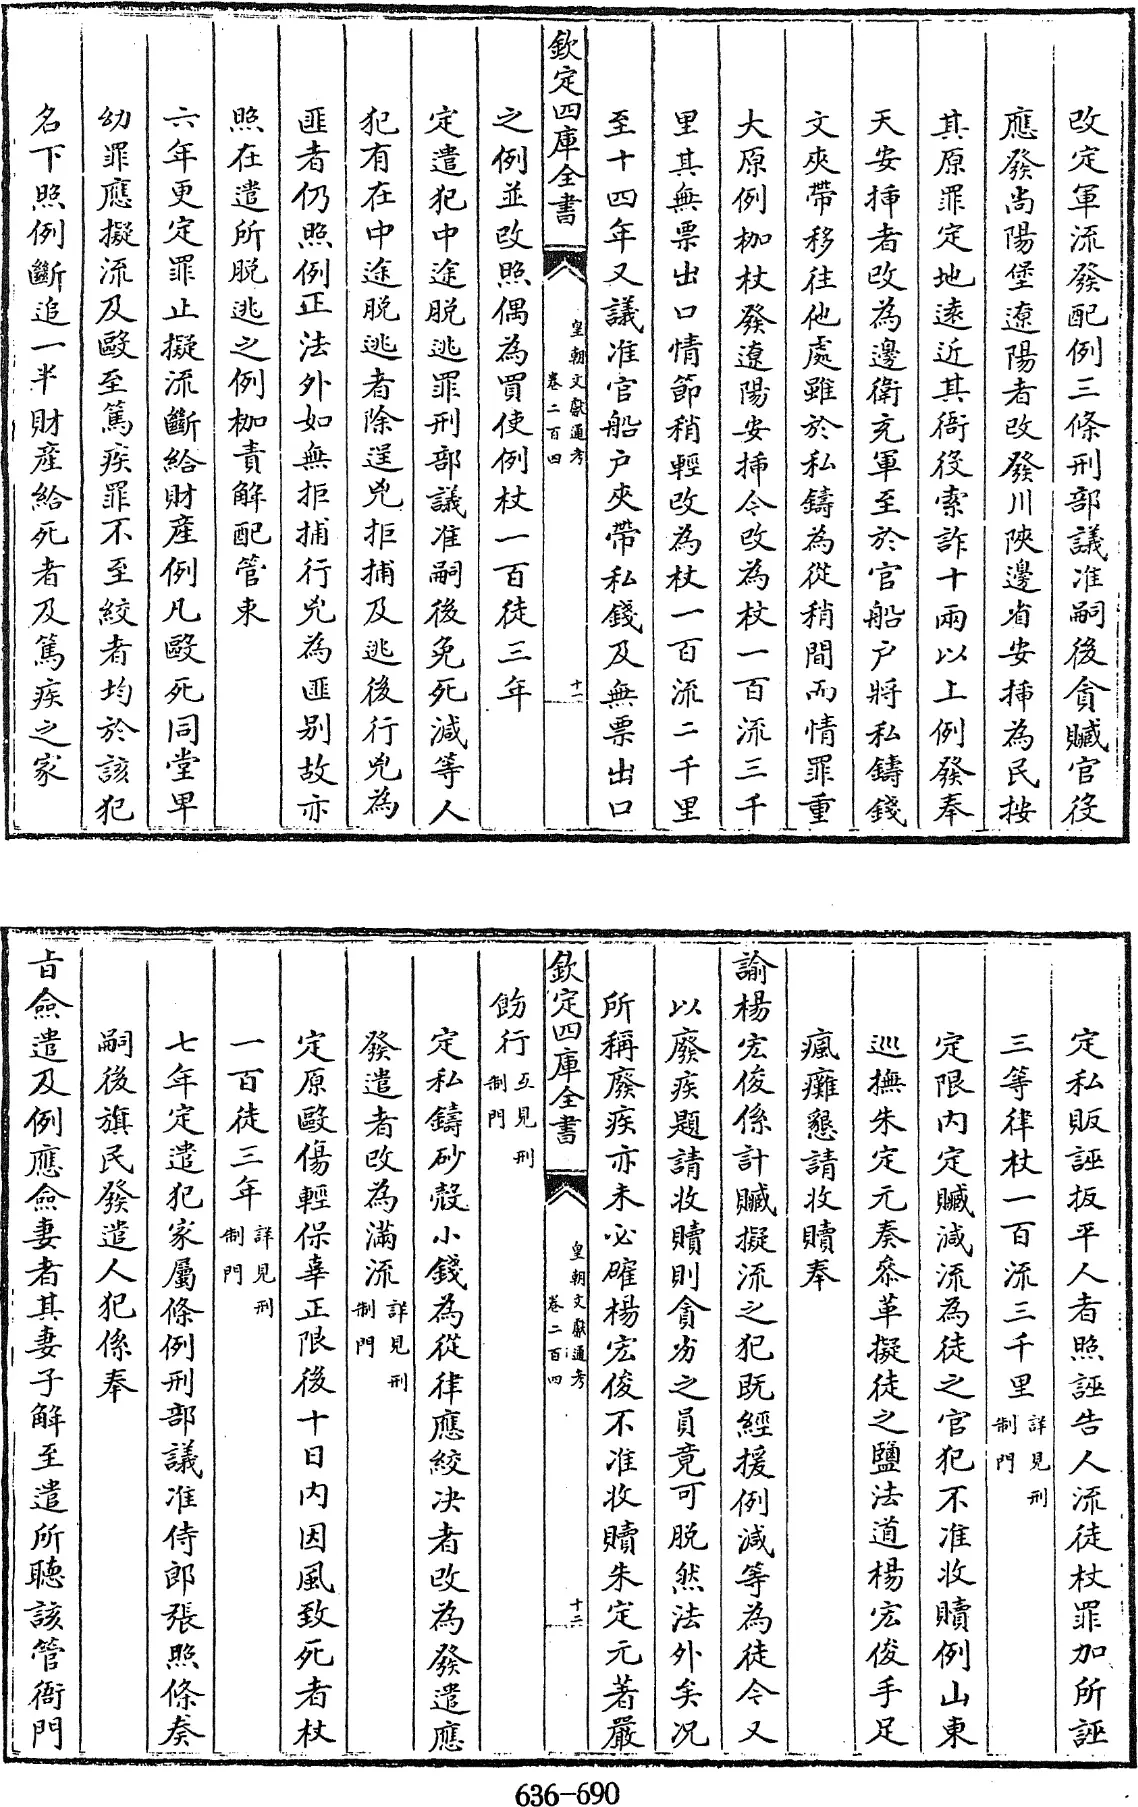 改定軍流發配例三條刑部議准嗣後貪贓官役
應發尚陽堡遼陽者改發川陜邊省安插為民按
其原罪定地遠近其衙役索詐十兩以上例發奉
天安挿者改為邊衛充軍至於官船户將私鑄錢
文夾帶移往他處雖於私鑄為從稍間而情罪重
大原例枷杖發遼陽安挿今改為杖一百流三千
里其無票出口情節稍輕改為杖一百流二千里
至十四年又議准官船户夾帶私錢及無票出口
欽定四庫全書
皇朝文獻通考
卷二百四
十一
之例並改照偶為買使例杖一百徒三年
定遣犯中途脱逃罪刑部議准嗣後免死減等人
犯有在中途脱逃者除逞兇拒捕及逃後行兇為
匪者仍照例正法外如無拒捕行兇為匪别故亦
照在遣所脱逃之例枷責解配管束
六年更定罪止擬流斷給財産例凡毆死同堂卑
幼罪應擬流及毆至篤疾罪不至絞者均於該犯
名下照例斷追一半財産給死者及篤疾之家
定私販誣扳平人者照誣告人流徒杖罪加所誣
三等律杖一百流三千里詳見刑制門
定限内定贓減流為徒之官犯不准收贖例山東
巡撫朱定元奏叅革擬徒之鹽法道楊宏俊手足
瘋癱懇請收贖奉
諭楊宏俊係計贓擬流之犯既經援例減等為徒今又
以廢疾題請收贖則貪劣之員竟可脱然法外矣况
所稱廢疾亦未必確楊宏俊不准收贖朱定元著嚴
欽定四庫全書
皇朝文獻通考
卷二百四
十二
飭行互見刑制門
定私鑄砂殻小錢為從律應絞决者改為發遣應
發遣者改為滿流詳見刑制門
定原毆傷輕保辜正限後十日内因風致死者杖
一百徒三年詳見刑制門
七年定遣犯家屬條例刑部議准侍郎張照條奏
嗣後旗民發遣人犯係奉
㫖僉遣及例應僉妻者其妻子解至遣所聽該管衙門
636-690